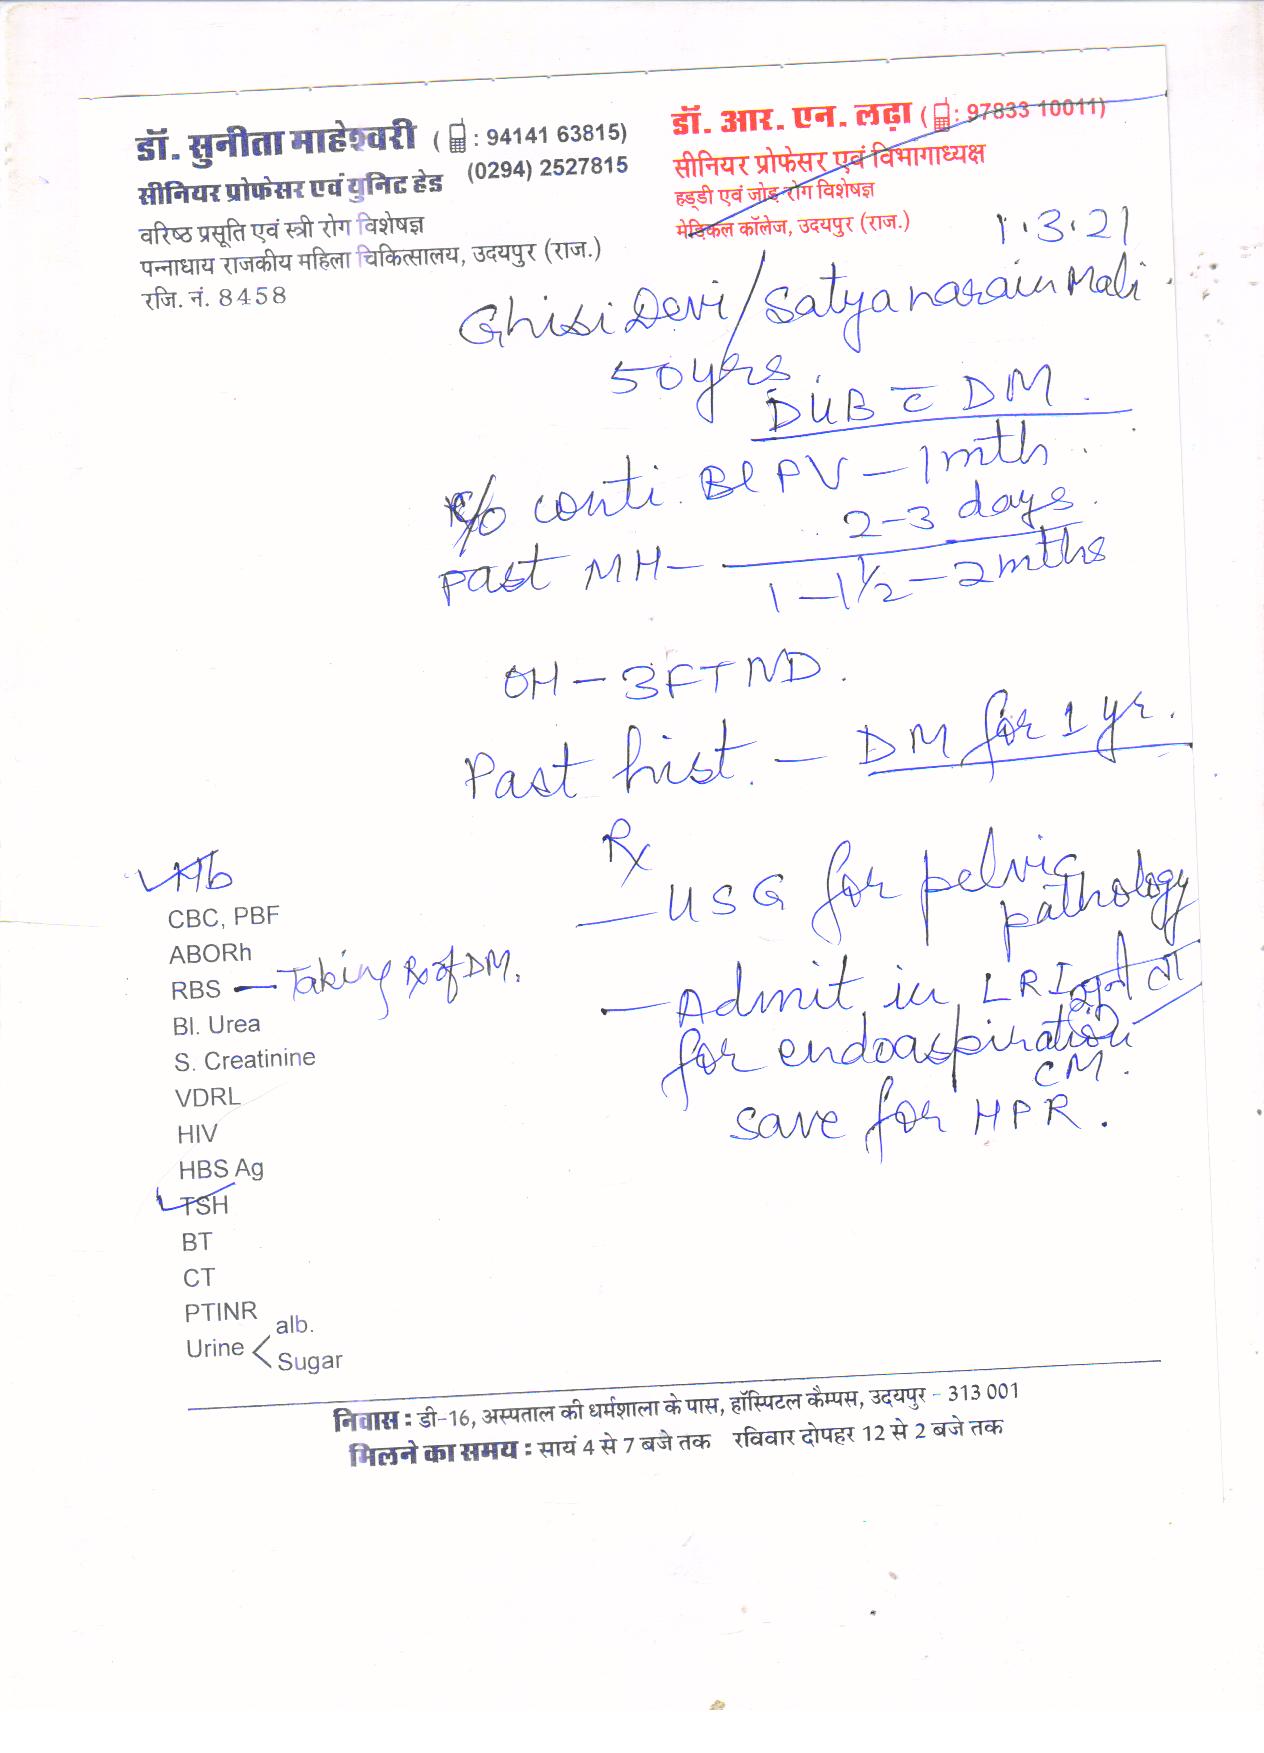 डॉ. सुनीता माहेश्वरी ( : 94141 63815)
(0294) 2527815
सीनियर प्रोफेसर एवं युनिट हेड
वरिष्ठ प्रसूति एवं स्त्री रोग विशेषज्ञ
पन्नाधाय राजकीय महिला चिकित्सालय, उदयपुर (राज.)
रजि. नं. 8458
डॉ. आर. एन. लढ़ा ( : 97833 10011)
सीनियर प्रोफेसर एवं विभागाध्यक्ष
हड्डी एवं जोड़ रोग विशेषज्ञ
मेडिकल कॉलेज, उदयपुर (राज.)
1.3.21
Ghisi Devi/Satyanarain Mali
50yrs.
DUB c̄ DM.
c/o conti. Bl PV – 1 mth.
Past MH – 2-3 days.
1 – 1½ – 2 mths
OH – 3FTND.
Past hist. – DM for 1 yr.
Rx
– USG for pelvic
pathology
– Admit in LRI
for endoaspiration
CM.
save for HPR.
Hb
CBC, PBF
ABORh
RBS – Taking Rx of DM.
Bl. Urea
S. Creatinine
VDRL
HIV
HBS Ag
TSH
BT
CT
PTINR
Urine < alb.
Sugar
निवास : डी-16, अस्पताल की धर्मशाला के पास, हॉस्पिटल कैम्पस, उदयपुर - 313 001
मिलने का समय : सायं 4 से 7 बजे तक रविवार दोपहर 12 से 2 बजे तक